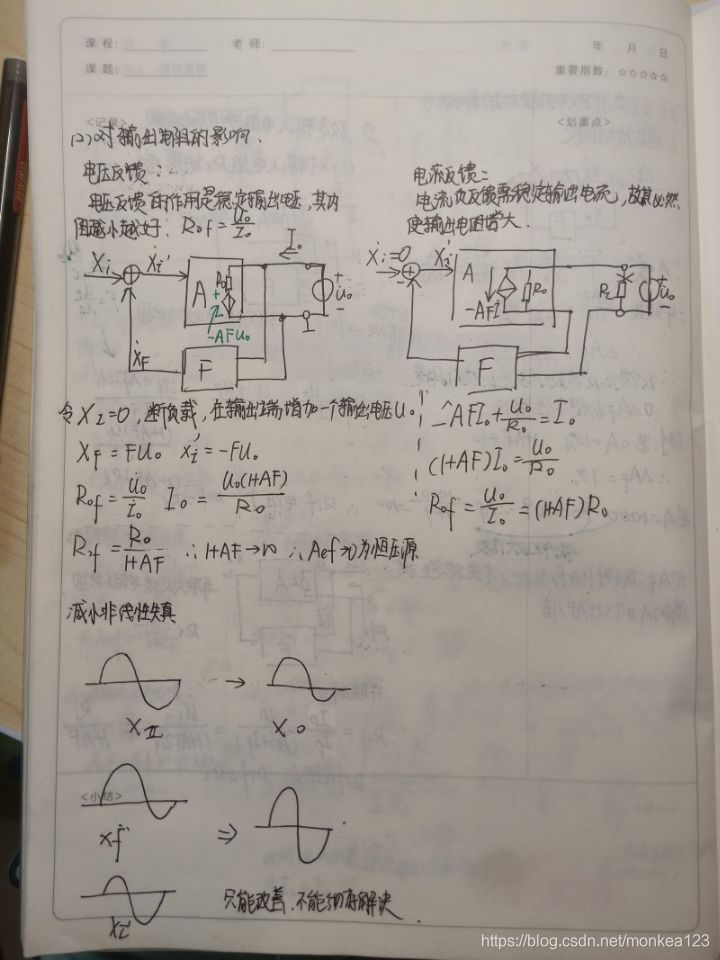 课程: 老师: 年 月 日
课题: 重要指数: ☆☆☆☆☆
<记录> <划重点>
(2)对输出电阻的影响.
电压反馈:...
电压反馈的作用是稳定输出电压,其内
阻越小越好. Rof=Uo/Io
电流反馈:
电流负反馈需稳定输出电流,故其必然
使输出电阻增大.
Xi Xi' A Ro + -AFUo Io + Uo -
XF F
Xi=0 Xi' A -AFI Ro RL + Uo -
F
令XI=0,断负载,在输出端增加一个输出电压Uo
XF=FUo Xi'=-FUo
Rof=Uo/Io Io=Uo(1+AF)/Ro
Rof=Ro/1+AF ∴1+AF→∞ ∴Aef→0为恒压源
-AFIo+Uo/Ro=Io
(1+AF)Io=Uo/Ro
Rof=Uo/Io=(1+AF)Ro
减小非线性失真
XI → Xo
<小结>
Xf ⇒
Xi'
只能改善.不能彻底解决.
https://blog.csdn.net/monkea123